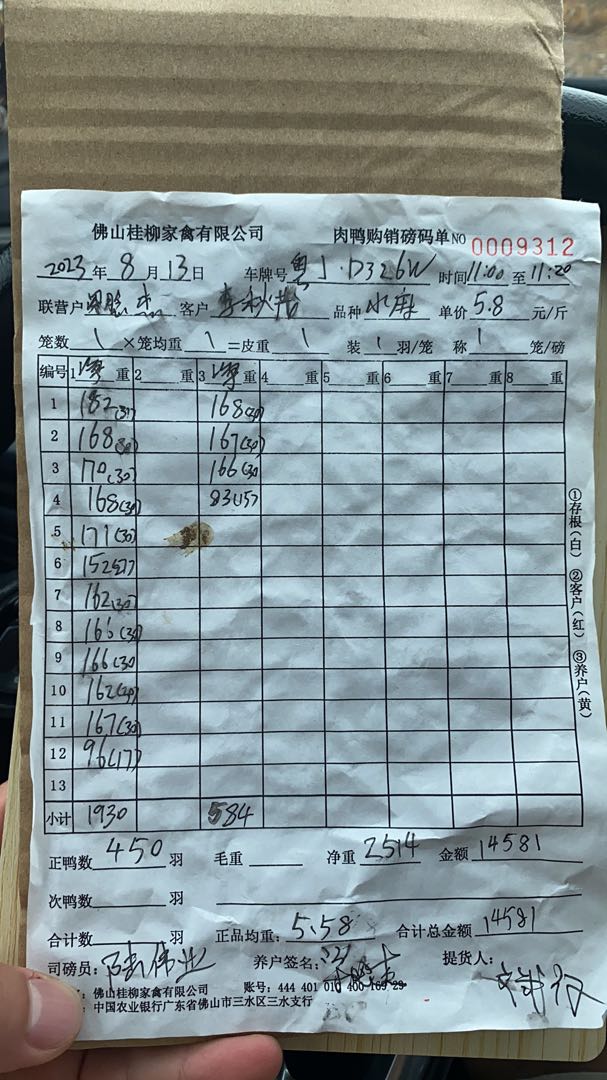 佛山桂柳家禽有限公司 肉鸭购销磅码单 NO 0009312
2023年8月13日 车牌号 粤J·D326W 时间 11:00 至 11:20
联营户 客户 李 品种 水麻 单价 5.8 元/斤
笼数 1 ×笼均重 1 =皮重 1 装 1 羽/笼 称 1 笼/磅
编号 1 净重 2 重 3 净重 4 重 5 重 6 重 7 重 8 重
1 182(31) 168(30)
2 168(30) 167(30)
3 170(30) 166(30
4 168(30) 83(15)
5 171(30)
6 152(27)
7 162(30)
8 166(30)
9 166(30
10 162(30)
11 167(30)
12 96(17)
13
小计 1930 584
正鸭数 450 羽 毛重 净重 2514 金额 14581
次鸭数 羽
合计数 羽 正品均重: 5.58 合计总金额 14581
司磅员: 伟业 养户签名: 提货人:
佛山桂柳家禽有限公司 账号: 444 401 010 400 169 29
中国农业银行广东省佛山市三水区三水支行
①存根(白) ②客户(红) ③养户(黄)